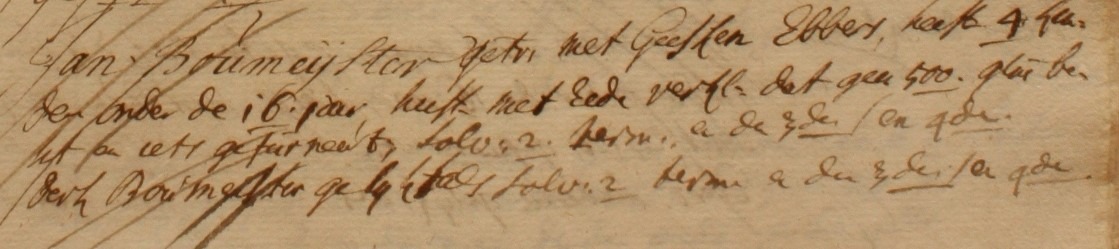 Jan Boúmeijster getr. met Geesken Ebbers, heeft 4 kin-
der onder de 16. jaar, heeft met Eede verkl: dat geen 500. glns be-
sit en iets gefurneert, solv: 2. term. en den 3den en 4den.
Derk Boúmeijster gelijk als solv: 2 term en den 3den en 4den.